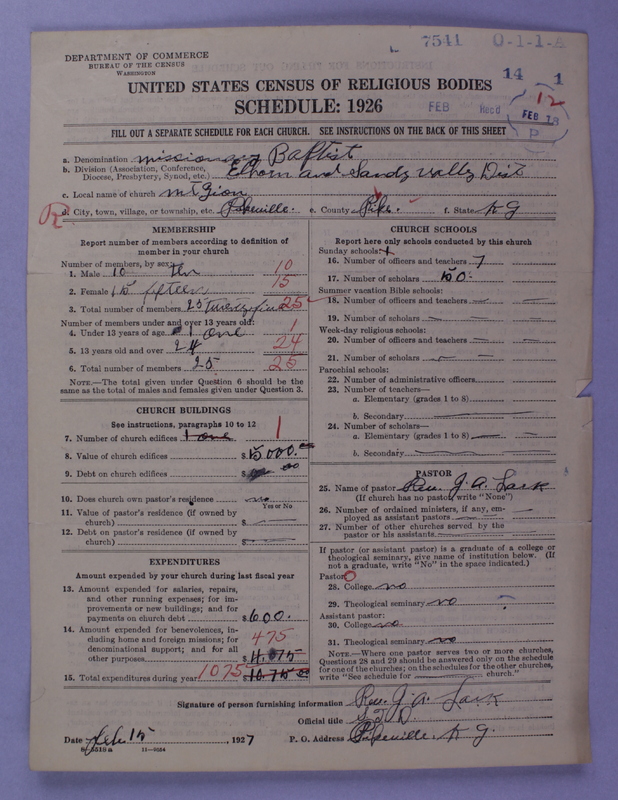 7541 0-1-1-A
DEPARTMENT OF COMMERCE
BUREAU OF THE CENSUS
WASHINGTON
14 1
UNITED STATES CENSUS OF RELIGIOUS BODIES
SCHEDULE: 1926
FEB Recd FEB 18 12
P
FILL OUT A SEPARATE SCHEDULE FOR EACH CHURCH. SEE INSTRUCTIONS ON THE BACK OF THIS SHEET
a. Denomination missionary Baptist
b. Division (Association, Conference, Diocese, Presbytery, Synod, etc.) Elhorn and Sandy vally Dist
c. Local name of church mt Zion
R d. City, town, village, or township, etc. Pikeville. e. County Pike f. State K G
MEMBERSHIP
Report number of members according to definition of
member in your church
Number of members, by sex:
1. Male 10 ten 10
2. Female 15 fifteen 15
3. Total number of members 25 twenty five 25
Number of members under and over 13 years old:
4. Under 13 years of age 1 one 1
5. 13 years old and over 24 24
6. Total number of members 25 25
NOTE.—The total given under Question 6 should be the
same as the total of males and females given under Question 3.
CHURCH BUILDINGS
See instructions, paragraphs 10 to 12
7. Number of church edifices 1 one 1
8. Value of church edifices $ 5000.00
9. Debt on church edifices $ 00
10. Does church own pastor's residence no
Yes or No
11. Value of pastor's residence (if owned by
church) $
12. Debt on pastor's residence (if owned by
church) $
EXPENDITURES
Amount expended by your church during last fiscal year
13. Amount expended for salaries, repairs,
and other running expenses; for im-
provements or new buildings; and for
payments on church debt $ 600.
14. Amount expended for benevolences, in-
cluding home and foreign missions; for
denominational support; and for all
other purposes $ 475
15. Total expenditures during year 1075 $ 10.75
CHURCH SCHOOLS
Report here only schools conducted by this church
Sunday schools: 1
16. Number of officers and teachers 7
17. Number of scholars 50
Summer vacation Bible schools:
18. Number of officers and teachers
19. Number of scholars
Week-day religious schools:
20. Number of officers and teachers
21. Number of scholars
Parochial schools:
22. Number of administrative officers
23. Number of teachers—
a. Elementary (grades 1 to 8)
b. Secondary
24. Number of scholars—
a. Elementary (grades 1 to 8)
b. Secondary
PASTOR
25. Name of pastor Rev. J. A. Lark
(If church has no pastor, write "None")
26. Number of ordained ministers, if any, em-
ployed as assistant pastors
27. Number of other churches served by the
pastor or his assistants
If pastor (or assistant pastor) is a graduate of a college or
theological seminary, give name of institution below. (If
not a graduate, write "No" in the space indicated.)
Pastor: 0
28. College no
29. Theological seminary no
Assistant pastor:
30. College no
31. Theological seminary no
NOTE.—Where one pastor serves two or more churches,
Questions 28 and 29 should be answered only on the schedule
for one of the churches; on the schedules for the other churches,
write "See schedule for church."
Signature of person furnishing information Rev. J. A. Lark
Official title
Date Feb. 15, 1927 P. O. Address Pikeville, K G.
11—9554